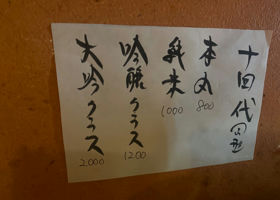 十四代
本丸 800
純米 1000
吟醸クラス 1200
大吟クラス 2000